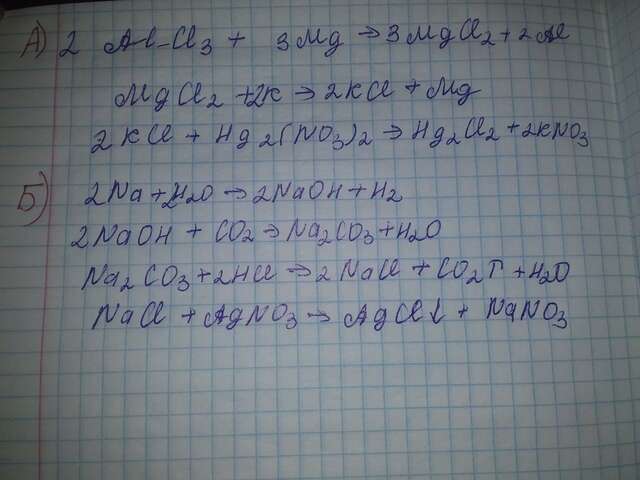 А) 2 AlCl3 + 3Mg → 3MgCl2 + 2Al
MgCl2 + 2K → 2KCl + Mg
2KCl + Hg2(NO3)2 → Hg2Cl2 + 2KNO3
Б) 2Na + 2H2O → 2NaOH + H2
2NaOH + CO2 → Na2CO3 + H2O
Na2CO3 + 2HCl → 2NaCl + CO2↑ + H2O
NaCl + AgNO3 → AgCl↓ + NaNO3